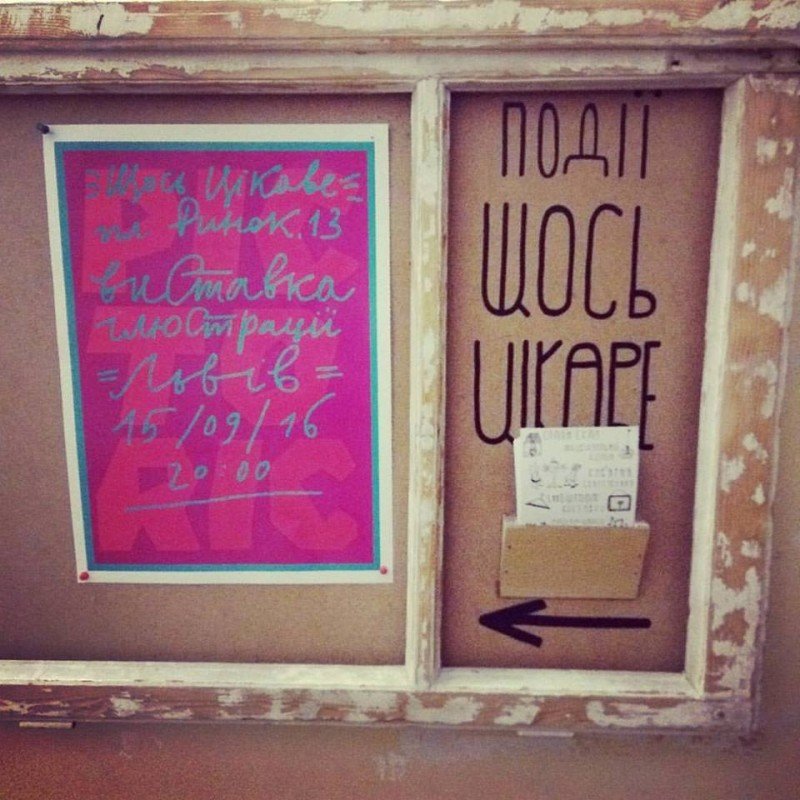 Щось Цікаве
пл Ринок.13
виставка
ілюстрації
Львів
15/09/16
20:00
PIC
TO
RIC
ПОДІЇ
ЩОСЬ
ЦІКАВЕ